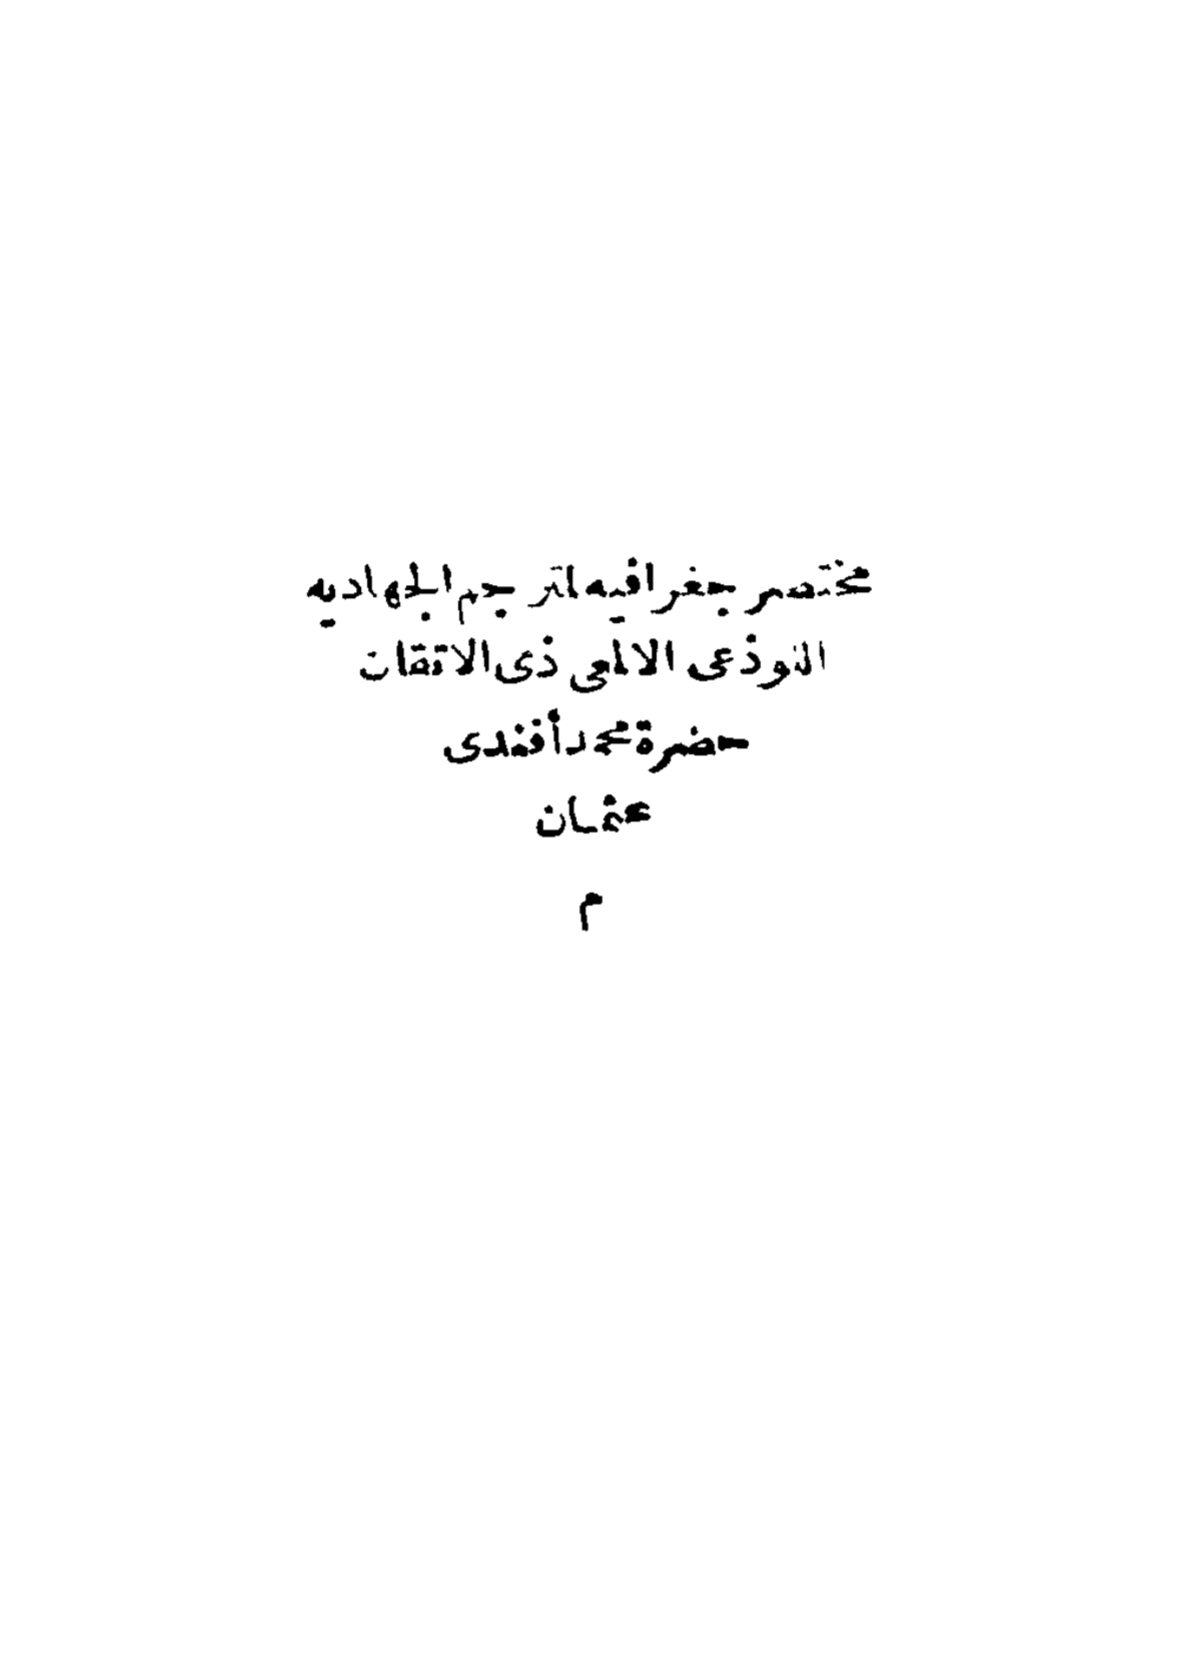 مختصر جغرافيه لمترجم الجهاديه
اللوذعى الالمعى ذى الاتقان
حضرة محمد أفندى
عثمان
م